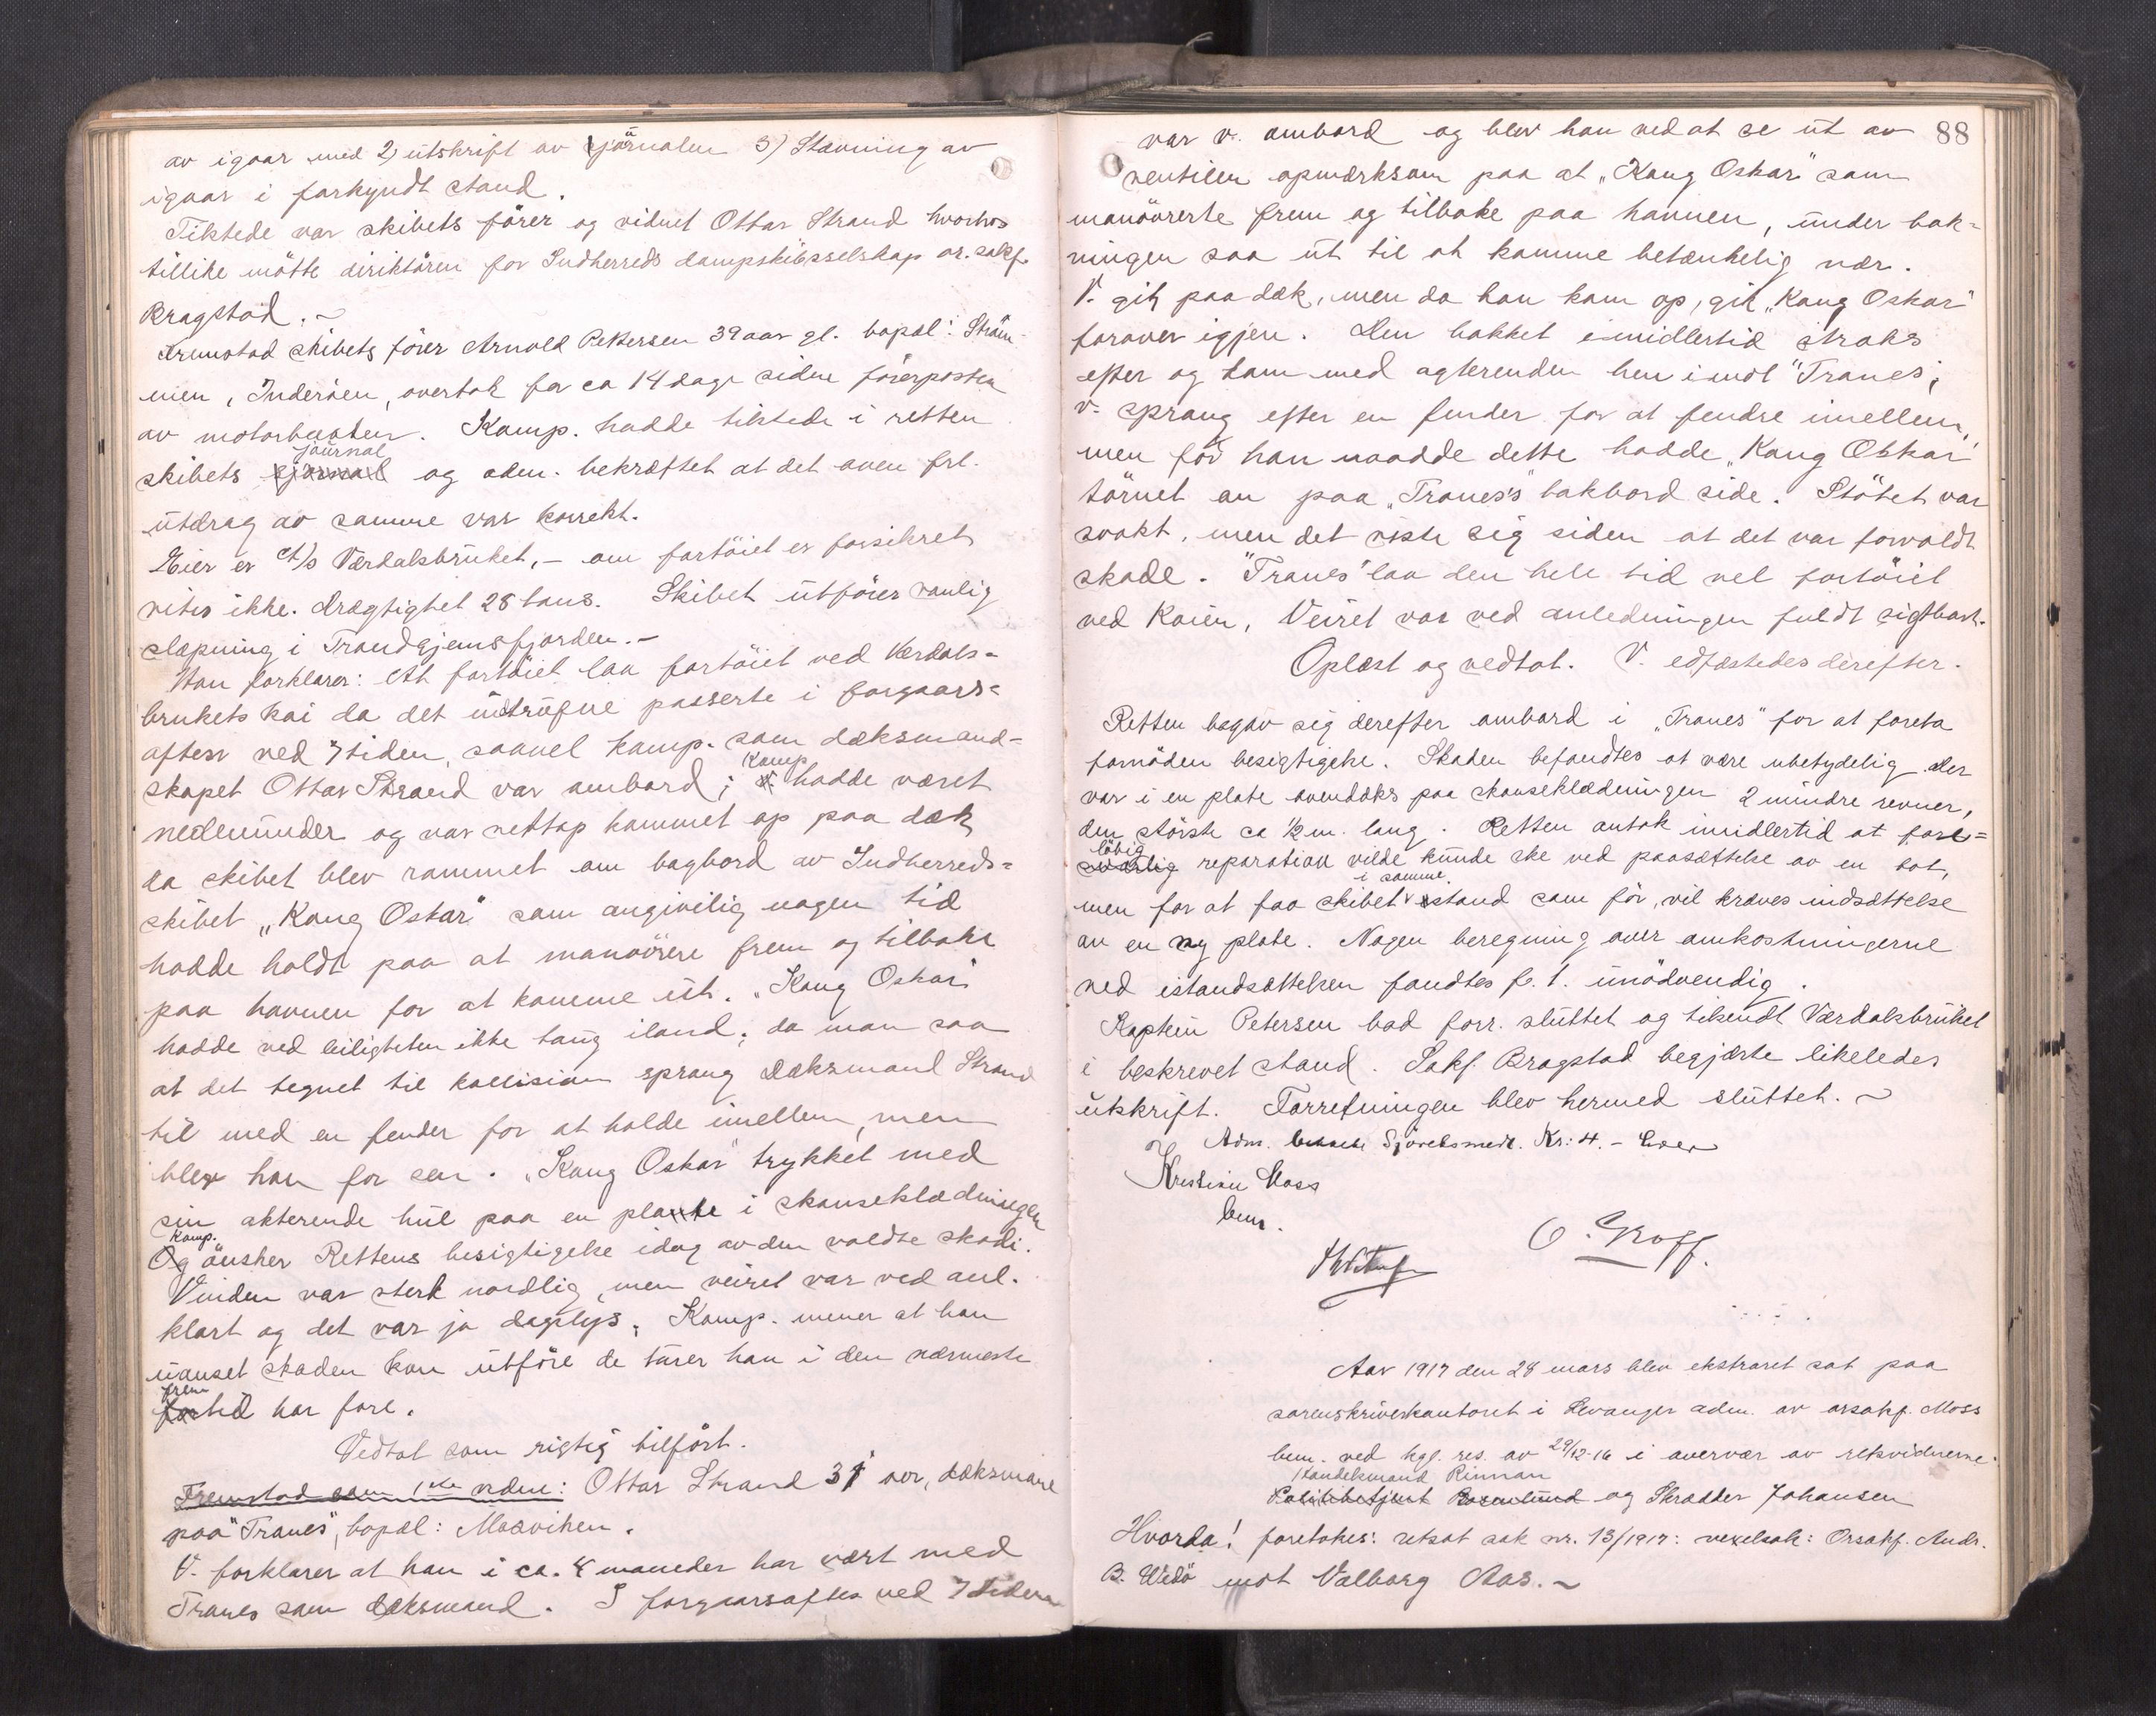 av igaar med 2) utskrift av journalen 3) Stævning av
igaar i forkyndt stand.
Tilstede var skibets fører og vidnet Ottar Strand hvorhos
tillike møtte direktøren for Indherreds dampskibsselskap or. sakf.
Bragstad. ~
Fremstod skibets fører Arnold Petersen 39 aar gl. bopæl: Strøm-
men, Inderøen, overtok for ca 14 dage siden førerposten
av motorbaaten. Komp. hadde tilstede i retten
skibets journal og adm. bekræftet at det oven frl.
utdrag av samme var korrekt.
Eier er A/s Værdalsbruket, – om fartøiet er forsikret
vites ikke. Drægtighet 28 tons. Skibet utfører vanlig
slæpning i Trondhjemsfjorden. –
Han forklarer: At fartøiet laa fortøiet ved Værdals=
brukets kai da det indtrufne passerte i forgaars=
aftes ved 7 tiden, saavel komp. som dæksmand=
skapet Ottar Strand var ombord; Komp hadde været
nedenunder og var nettop kommet op paa dæk
da skibet blev rammet om bagbord av Indherreds=
skibet „Kong Oskar" som angivelig nogen tid
hadde holdt paa at manøvrere frem og tilbake
paa havnen for at komme ut. „Kong Oskar"
hadde ved leiligheten ikke taug iland; da man saa
at det tegnet til kollision sprang Dæksmand Strand
til med en fender for at holde imellem, men
blev han for sen. „Kong Oskar" trykket med
sin akterende hul paa en plate i skanseklædningen
Komp. ønsker Rettens besigtigelse idag av den voldte skade.
Vinden var sterk nordlig, men veiret var ved anl.
klart og det var jo dagslys. Komp. mener at han
uanset skaden kan utføre de turer han i den nærmeste
fremtid har fore.
Vedtat som rigtig tilført.
Fremstod som 1ste vidne: Ottar Strand 31 aar, dæksmand
paa "Tranes", bopæl: Mosviken.
V. forklarer at han i ca. 8 maaneder har vært med
Tranes som dæksmand. I forgaarsaftes ved 7 tiden
88
var v. ombord og blev han ved at se ut av
ventilen opmerksom paa at „Kong Oskar" som
manøvrerte frem og tilbake paa havnen, under bak=
ningen saa ut til at komme betænkelig nær.
V. gik paa dæk, men da han kom op, gik „Kong Oskar"
forover igjen. Den bakket imidlertid straks
efter og kom med agterenden hen imot "Tranes",
v. sprang efter en fender for at fendre imellem,
men før han naadde dette hadde „Kong Oskar"
tørnet an paa „Tranes's" bakbord side. Støtet var
svakt, men det viste sig siden at det var forvoldt
skade. "Tranes" laa den hele tid vel fortøiet
ved kaien, Veiret var ved anledningen fuldt sigtbart.
Oplæst og vedtat. V. edfæstedes derefter.
Retten begav sig derefter ombord i „Tranes" for at foreta
fornøden besigtigelse. Skaden befandtes at være ubetydelig. Der
var i en plate ovendæks paa skanseklædningen 2 mindre revner,
den største ca ½ m. lang. Retten antok imidlertid at fore=
løbig reparation vilde kunde ske ved paasættelse av en bot,
men for at faa skibet i samme stand som før, vil kræves indsættelse
av en ny plate. Nogen beregning over omkostningerne
ved istandsættelsen fandtes f. t. unødvendig.
Kaptein Petersen bad forr. sluttet og tilsendt Værdalsbruket
i beskrevet stand. Sakf. Bragstad begjærte likeledes
utskrift. Forretningen blev hermed sluttet. ~
Adm. Sjøretsmedl. Kr: 4. –
Kristian Moss
bem.
O. Hroff.
Aar 1917 den 28 mars blev ekstraret sat paa
sorenskriverkontoret i Levanger adm. av orsakf. Moss
bem. ved kgl. res. av 29/12-16 i overvær av retsvidnerne
Handelsmand Rinnan
og Skrædder Johansen
Hvorda! foretokes: retsat sak nr. 13/1917: vexelsak: Orsakf. Andr.
B. Wedø mot Valborg Aas. ~